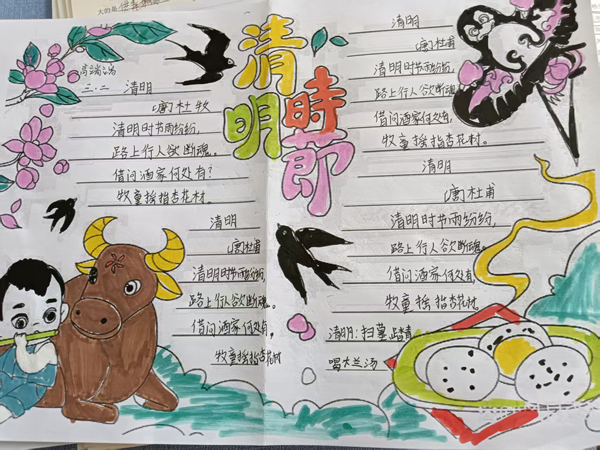 清明
時節
三.二 清明
(唐)杜牧
清明时节雨纷纷,
路上行人欲断魂。
借问酒家何处有?
牧童摇指杏花村。
清明
(唐)杜甫
清明时节雨纷纷,
路上行人欲断魂。
借问酒家何处有,
牧童摇指杏花村
清明
(唐)杜甫
清明时节雨纷纷,
路上行人欲断魂,
借问酒家何处有,
牧童摇指杏花村。
清明
(唐)杜甫
清明时节雨纷纷,
路上行人欲断魂
借问酒家何处有,
牧童摇指杏花村
清明:扫墓踏青
喝大兰汤